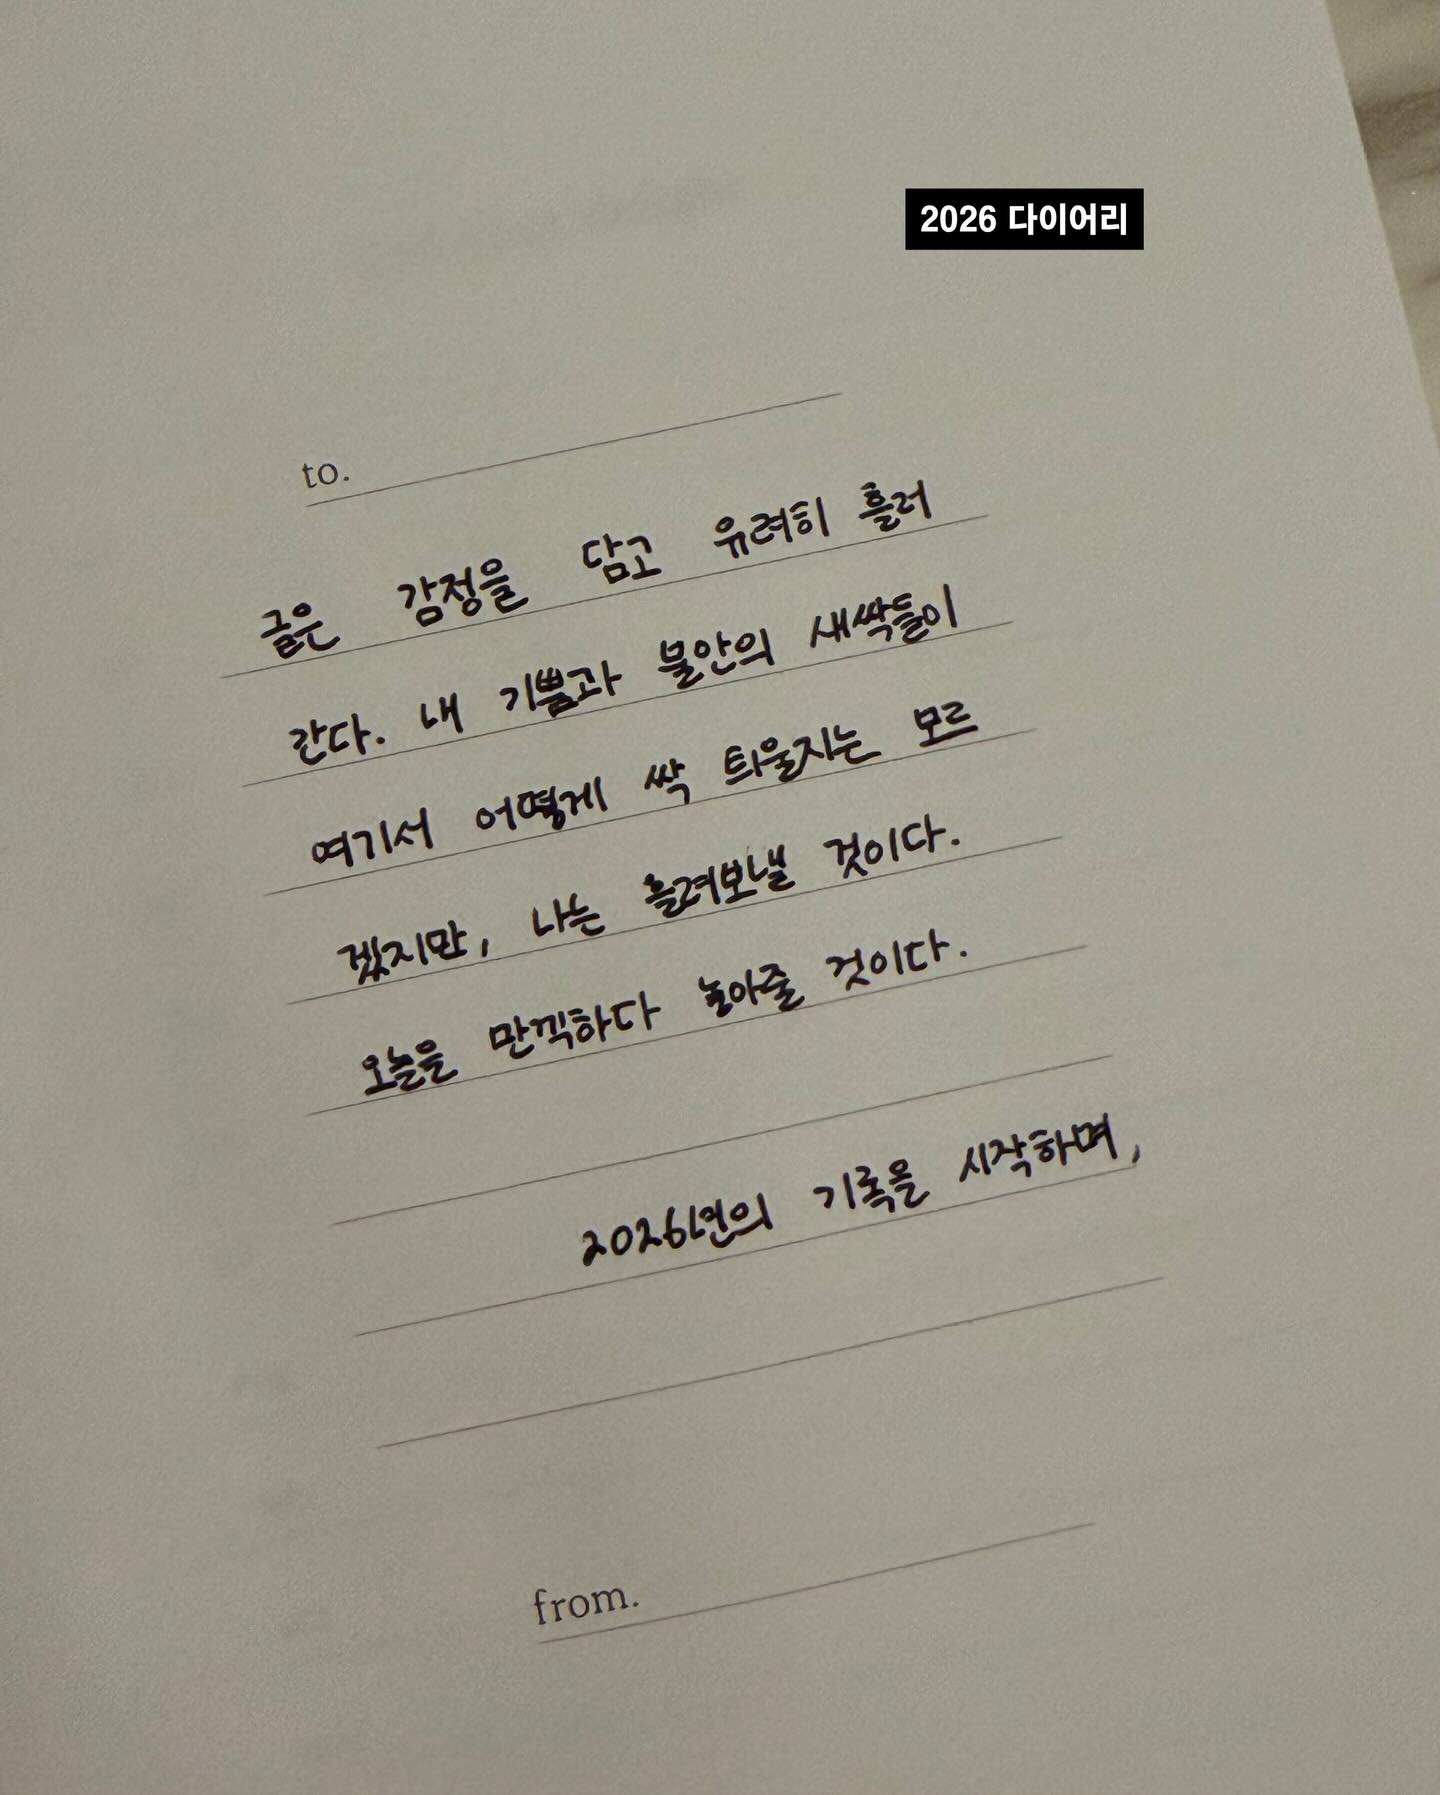 2026 다이어리
to.
글은 감정을 담고 유려히 흘러
간다. 내 기쁨과 불안의 새싹들이
여기서 어떻게 싹 틔울지는 모르
겠지만, 나는 흘려보낼 것이다.
오늘을 만끽하다 놓아줄 것이다.
2026년의 기록을 시작하며,
from.